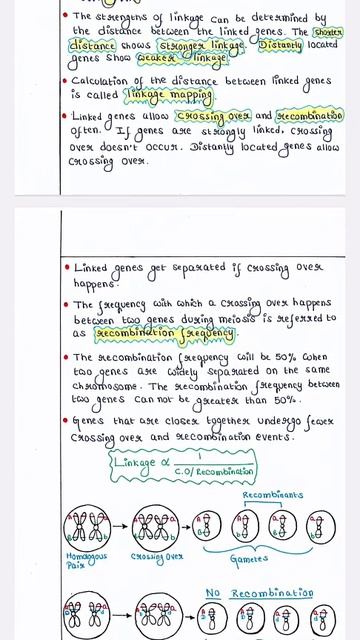 • The strengths of linkage can be determined by
the distance between the linked genes. The shorter
distance shows stronger linkage. Distantly located
genes show weaker linkage.
• Calculation of the distance between linked genes
is called linkage mapping.
• Linked genes allow crossing over and recombination
often. If genes are strongly linked, crossing
over doesn't occur. Distantly located genes allow
crossing over.
• Linked genes get separated if crossing over
happens.
• The frequency with which a crossing over happens
between two genes during meiosis is referred to
as recombination frequency.
• The recombination frequency will be 50% when
two genes are widely separated on the same
chromosome. The recombination frequency between
two genes can not be greater than 50%.
• Genes that are closer together undergo fewer
crossing over and recombination events.
Linkage ∝ 1
C.O/Recombination
Recombinants
Homologous
Pair
Crossing Over
Gametes
No Recombination